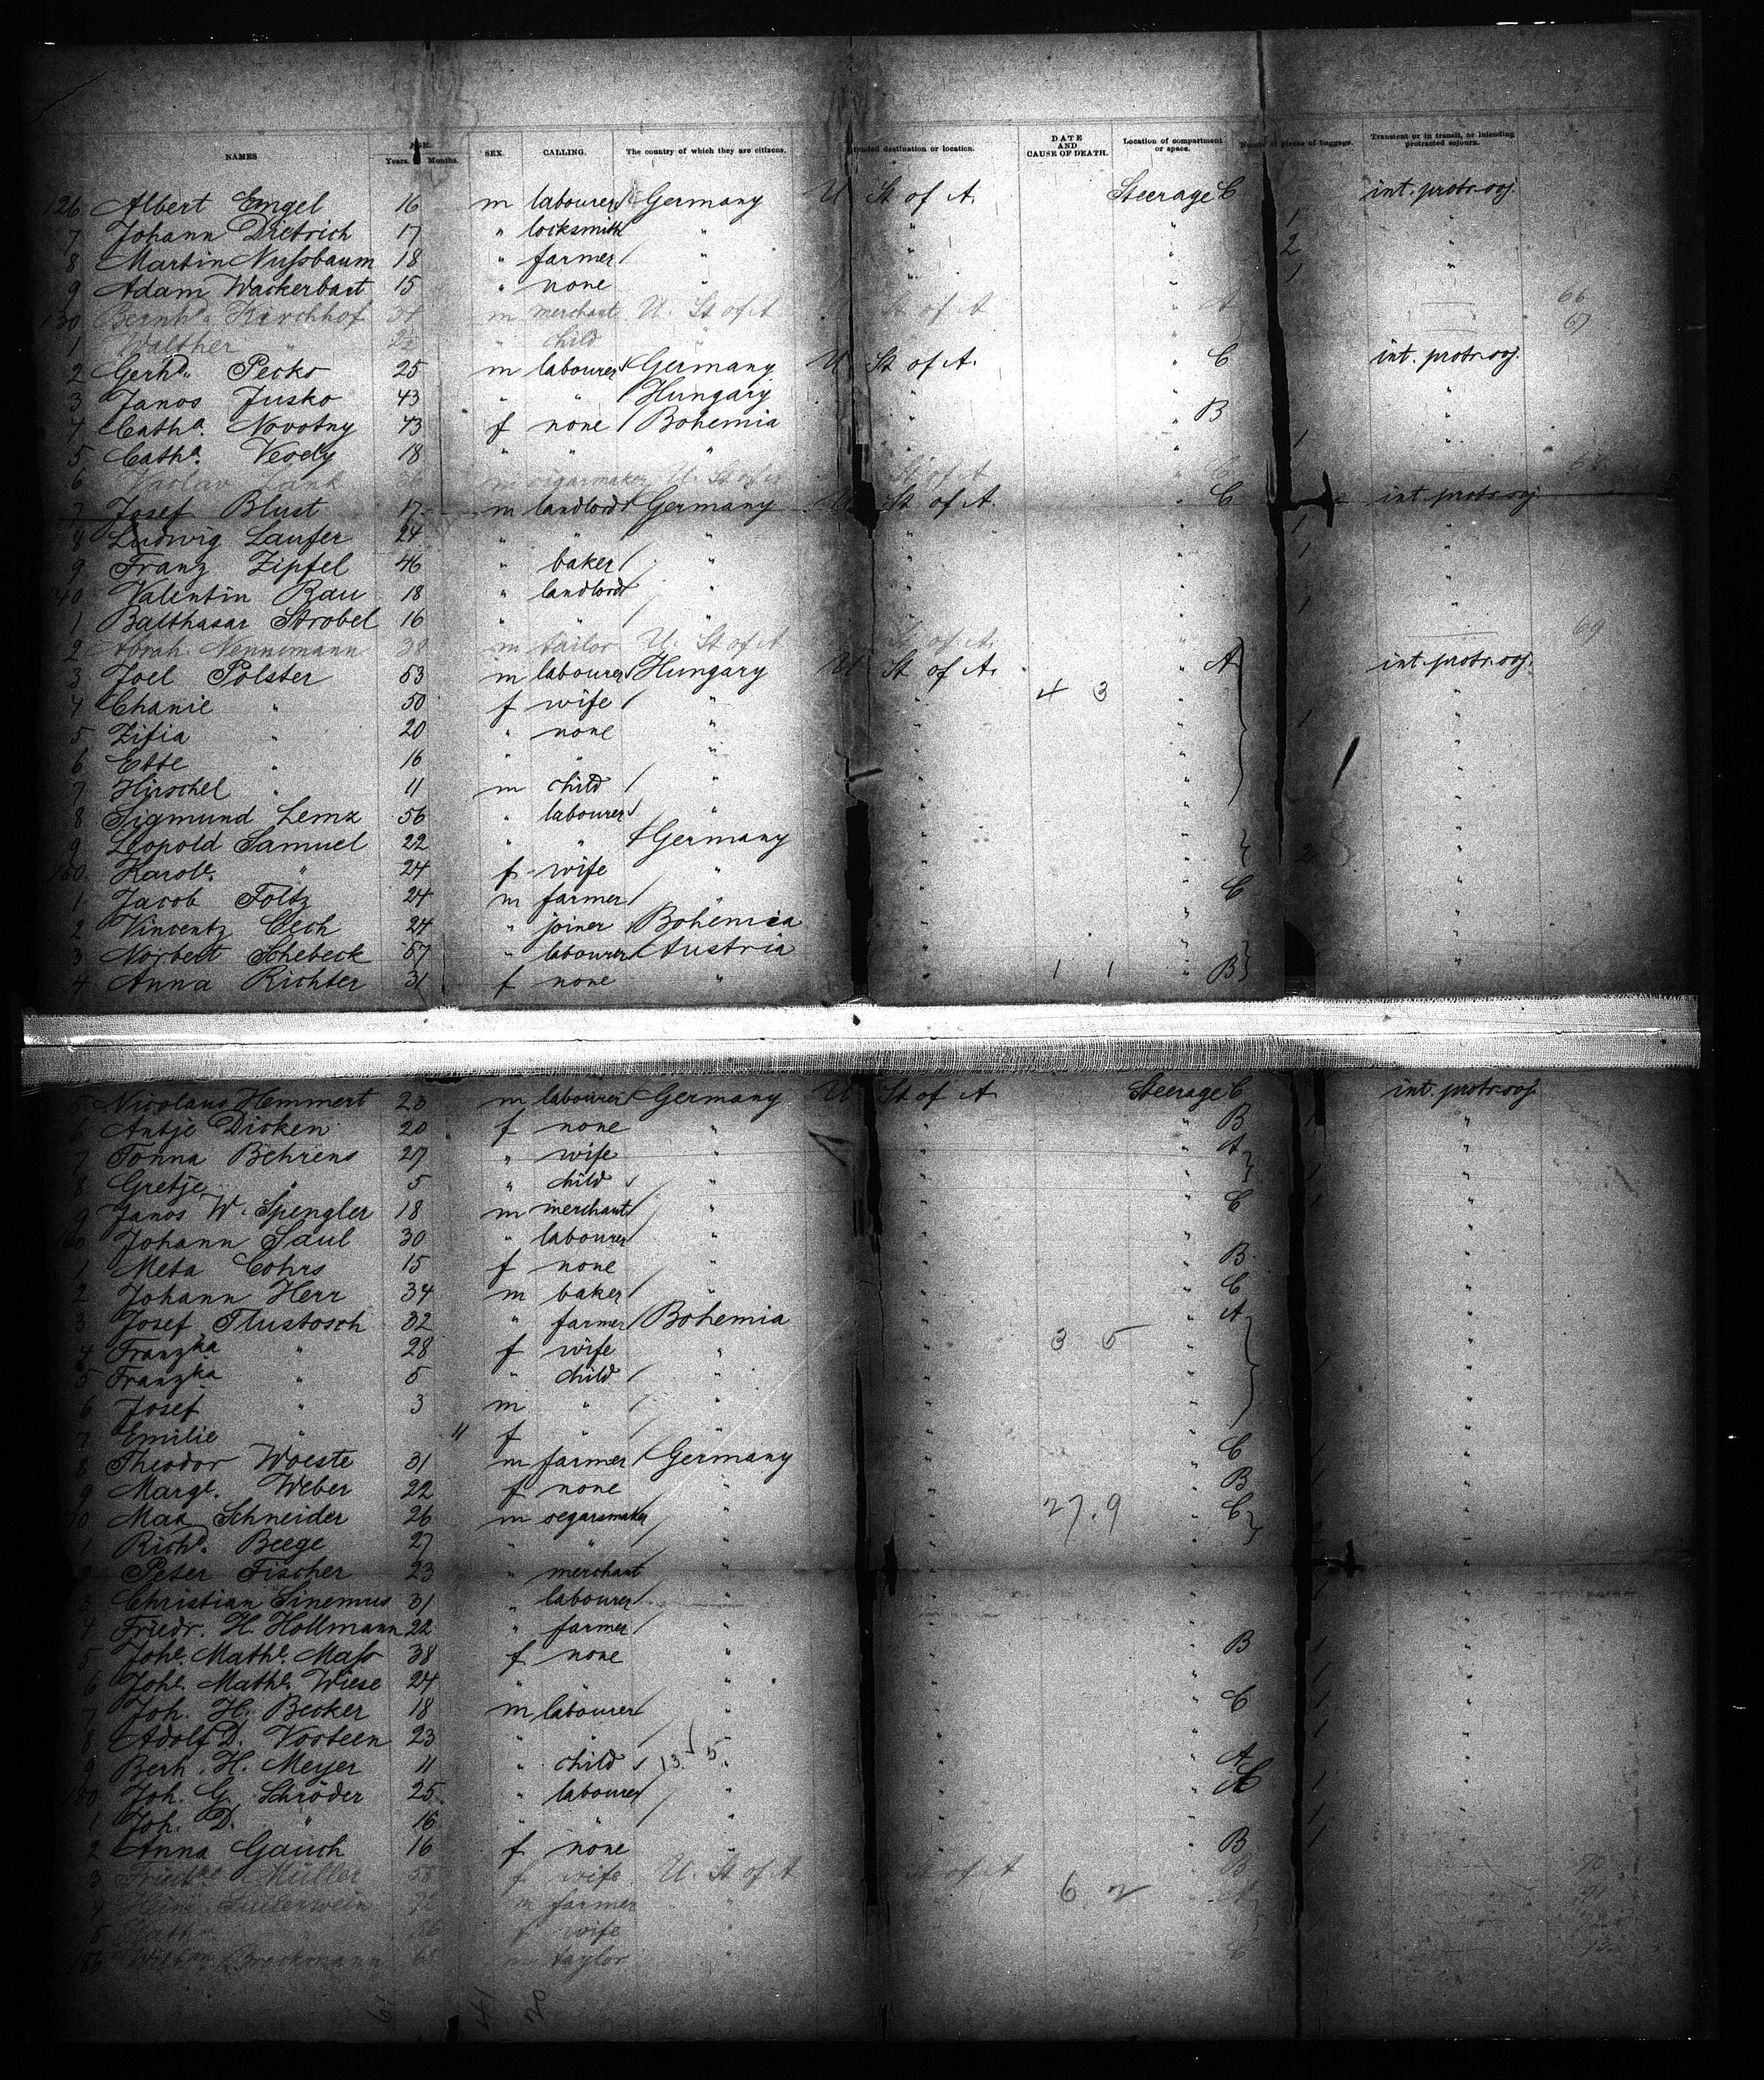 NAMES AGE. Years. Months. SEX. CALLING. The country of which they are citizens. destination or location. DATE AND CAUSE OF DEATH. Location of compartment or space. of pieces of baggage. Transient or in transit, or intending protracted sojourn.
126 Albert Engel 16 m labourer Germany U St of A. Steerage C int. protr. soj.
7 Johann Dietrich 17 " locksmith " " " 1 "
8 Martin Nußbaum 18 " farmer " " " 2 "
9 Adam Wackerbart 15 " none " " " 1 "
130 Bernhd. Kirchhof m merchant U. St of A St of A A 66
1 Walther " " child " 67
2 Gerhd. Pecks 25 m labourer Germany U St of A. " C int. protr. soj.
3 Janos Jusko 43 " " Hungary " " "
4 Catha. Novotny 73 f none Bohemia " " B "
5 Catha. Vecdy 18 " " " " " 1 "
6 Vaclav m cigarmaker U. St of A St of A C
7 Josef Blust 17 m landlord Germany U St of A. " C int. protr. soj.
8 Ludwig Laufer 24 " " " " " 1 "
9 Franz Zipfel 46 " baker " " " 1 "
140 Valentin Rau 18 " landlord " " " "
1 Balthasar Strobel 16 " " " " " 1 "
2 Abrah. Nennemann 38 m tailor U. St of A St of A. " 69
3 Joel Polster 53 m labourer Hungary U St of A. " A int. protr. soj.
4 Chanie " 50 f wife " " 4 3 " "
5 Zifia " 20 " none " " " 1 "
6 Ette " 16 " " " " " "
7 Hirschel " 11 m child " " " "
8 Sigmund Lemz 56 " labourer " " " "
9 Leopold Samuel 22 " " Germany " " "
150. Karole. " 24 f wife " " " 2 "
1 Jacob Foltz 24 m farmer " " " C "
2 Vincentz Cech 24 " joiner Bohemia " " "
3 Norbert Schebeck 57 " labourer Austria " " "
4 Anna Richter 31 f none " " 1 1 " B "
5 Nicolaus Hemmert 23 m labourer Germany U St of A Steerage C int. protr. soj.
6 Antje Dirken 20 f none " " " B 1 "
7 Tonna Behrens 27 " wife " " " A "
8 Gretje " 5 " child " " " 1 "
9 Janos W. Spengler 18 m merchant " " " C 1 "
160 Johann Saul 30 " labourer " " " "
1 Meta Cohrs 15 f none " " " B "
2 Johann Herr 34 m baker " " " C "
3 Josef Tlustosch 32 " farmer Bohemia " " A "
4 Franzka " 28 f wife " " 3 5 " "
5 Franzka " 5 " child " " " 1 "
6 Josef " 3 m " " " " "
7 Emilie " 11 f " " " " "
8 Theodor Woeste 31 m farmer Germany " " C 1 "
9 Margt. Weber 22 f none " " " B 1 "
70 Max Schneider 26 m segarsmaker " " 27.9 " C "
1 Richd. Beege 27 " " " " " 2 "
2 Peter Fischer 23 " merchant " " " "
3 Christian Sinemus 31 " labourer " " " 1 "
4 Friedr. H. Hollmann 22 " farmer " " " "
5 Johe. Mathe. Maß 38 f none " " " B 1 "
6 Johe. Mathe. Wiese 24 " " " " " 1 "
7 Joh. H. Becker 18 m labourer " " " C 1 "
8 Adolf D. Vosteen 23 " " " " " 1 "
9 Berh. H. Meyer 11 " child 13 5 " " A "
180 Joh. G. Schröder 25 " labourer " " " C 1 "
1 Joh. D. " 16 " " " " " 1 "
2 Anna Gauch 16 f none " " " B 1 "
3 Friedke Müller 58 f wife U. St of A St of A B 70
4 Heinr. m farmer " 6 2 A 71
5 Kath f wife "
186 Wilhm Brockmann m taylor " C